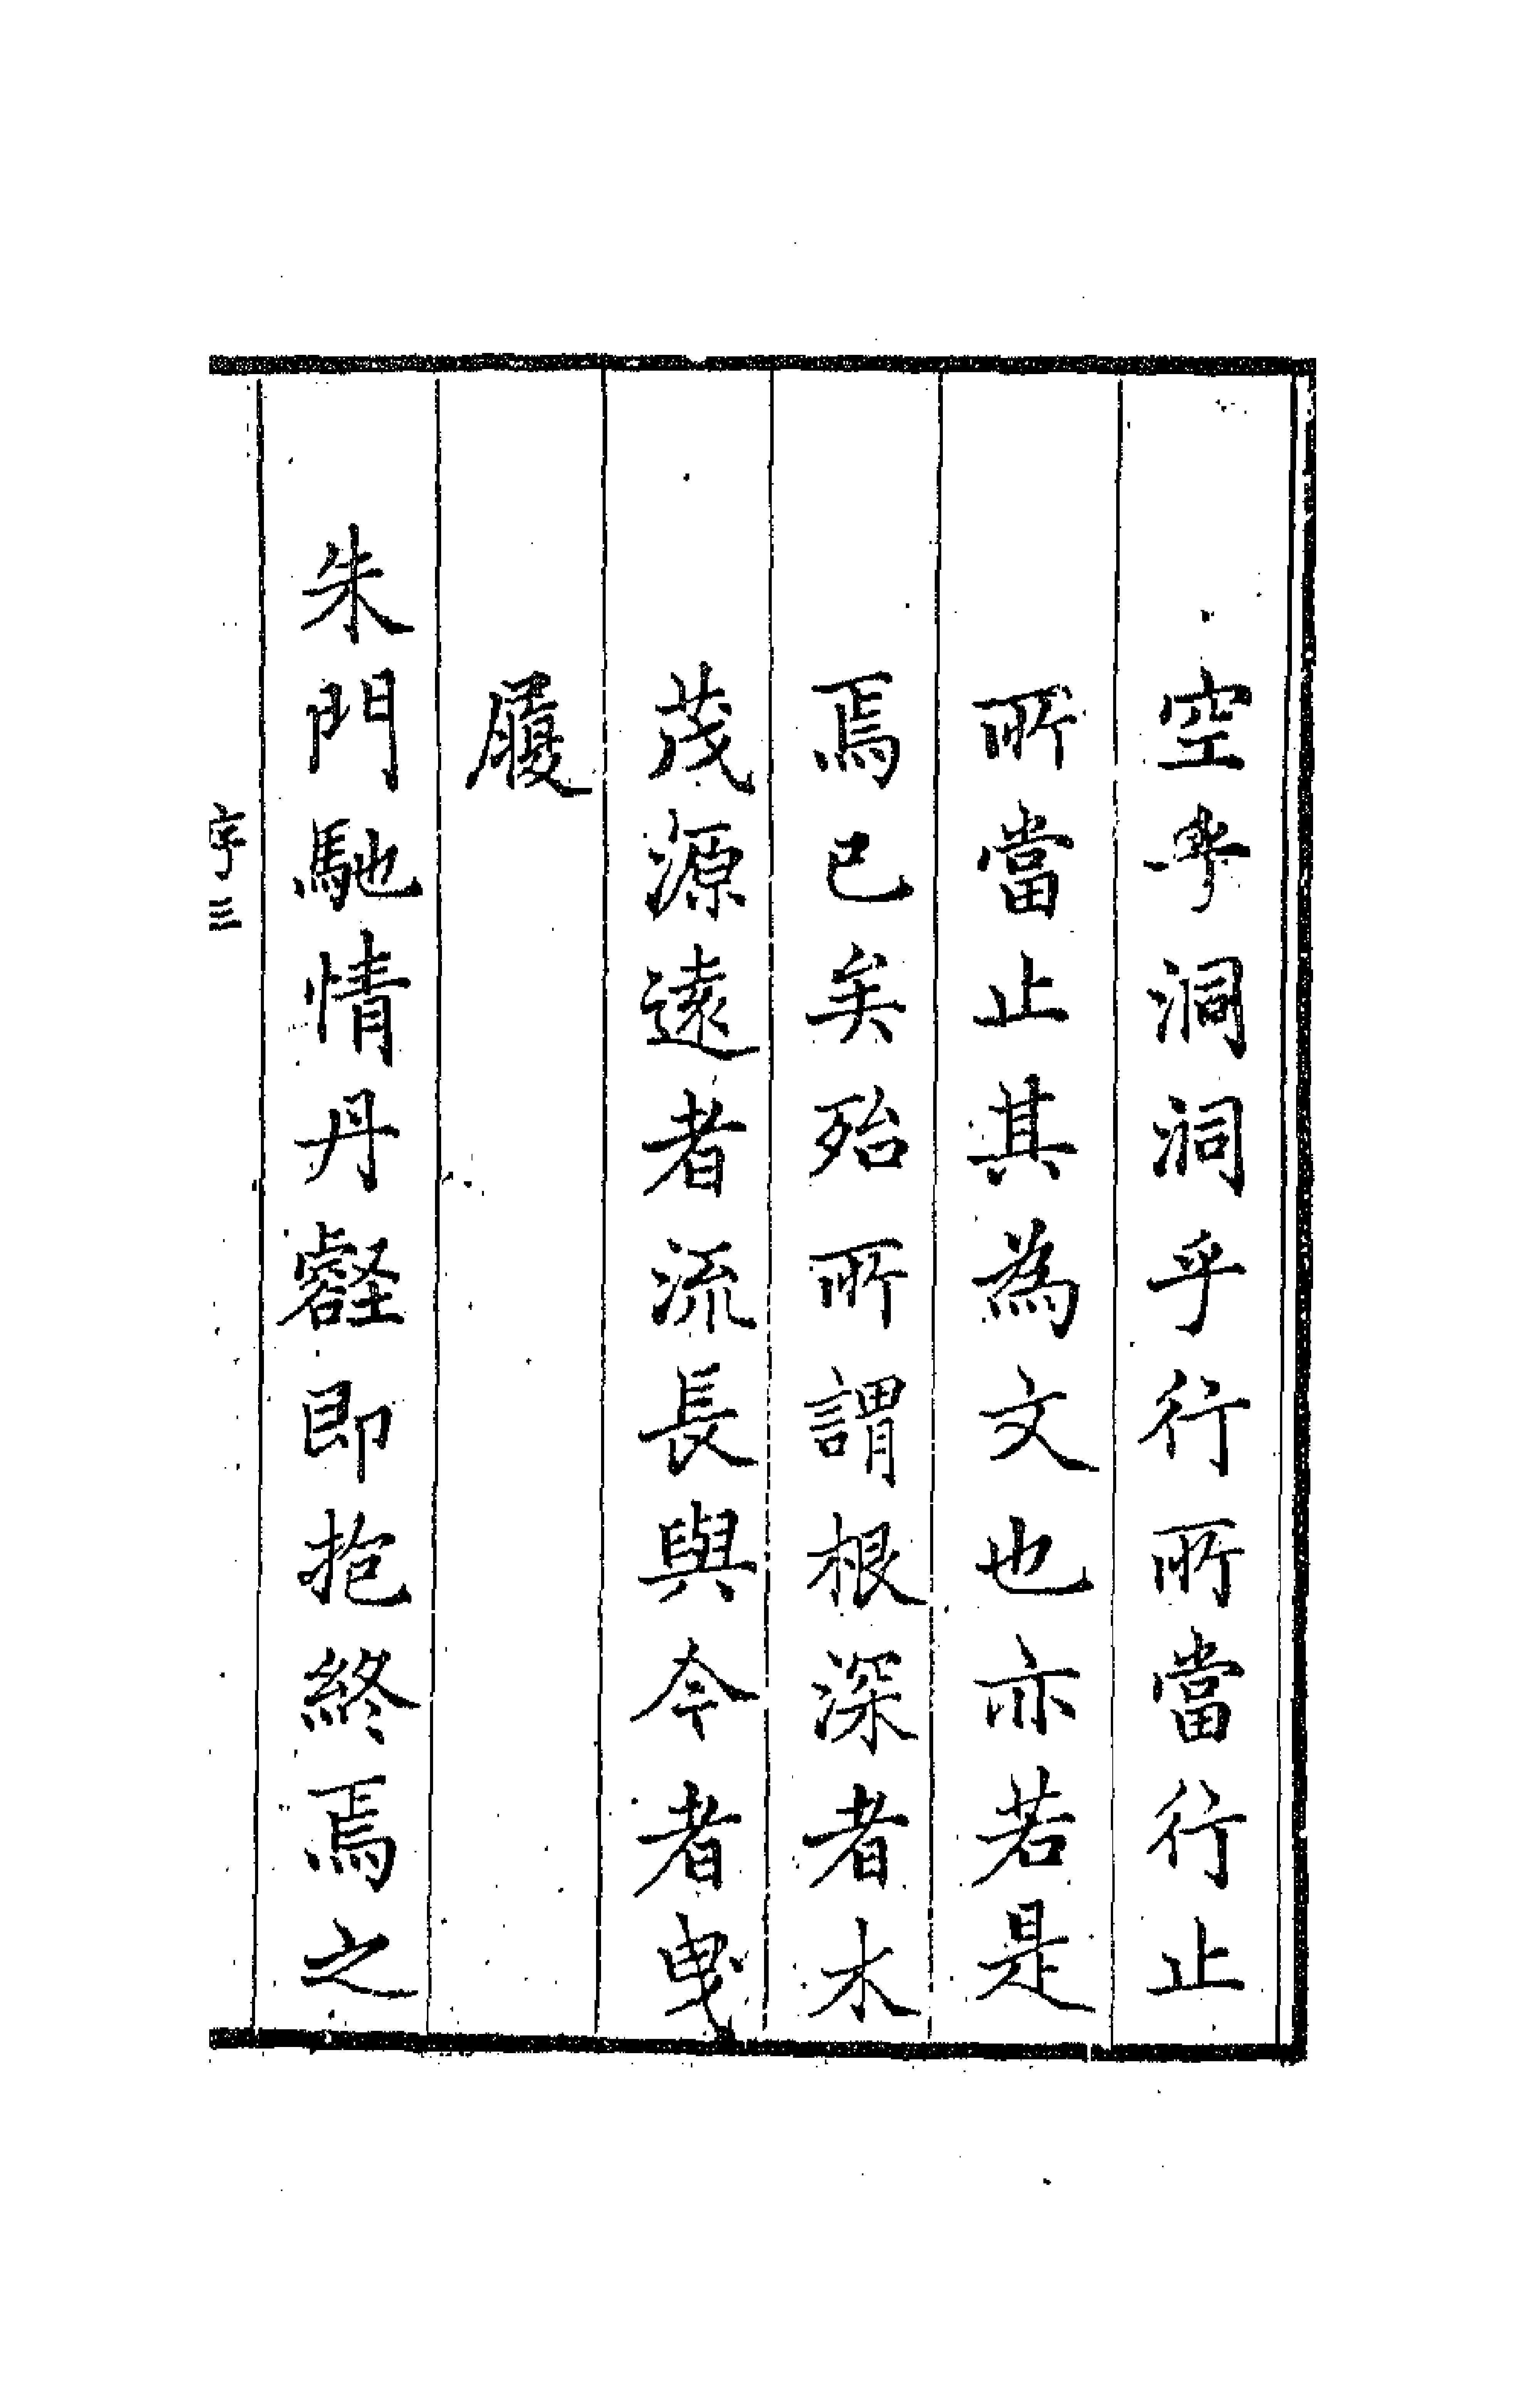 空乎洞洞乎行所當行止
所當止其為文也亦若是
焉已矣殆所謂根深者木
茂源遠者流長與今者曳
履
朱門馳情丹壑即抱終焉之
序三